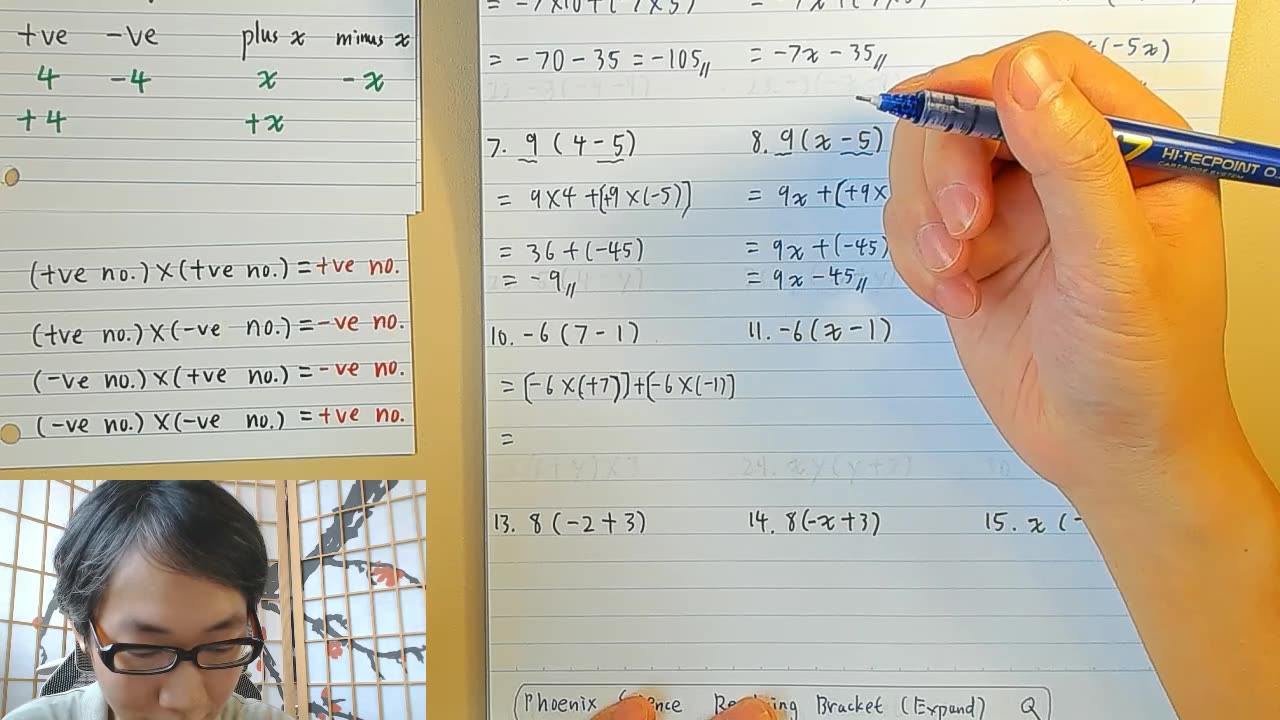 +ve -ve plus x minus x
4 -4 x -x
+4 +x
(+ve no.) X (+ve no.) = +ve no.
(+ve no.) X (-ve no.) = -ve no.
(-ve no.) X (+ve no.) = -ve no.
(-ve no.) X (-ve no.) = +ve no.
= -70 - 35 = -105 //
= -7x - 35 //
(-5x)
7. 9 (4 - 5)
= 9 X 4 + [+9 X (-5)]
= 36 + (-45)
= -9 //
8. 9 (x - 5)
= 9x + [+9 X
= 9x + (-45)
= 9x - 45 //
10. -6 (7 - 1)
= [-6 X (+7)] + [-6 X (-1)]
=
11. -6 (x - 1)
13. 8 (-2 + 3)
14. 8 (-x + 3)
15. x (-
Phoenix Bracket (Expand) Q
HI-TECPOINT 0.
CARTRIDGE SYSTEM
7